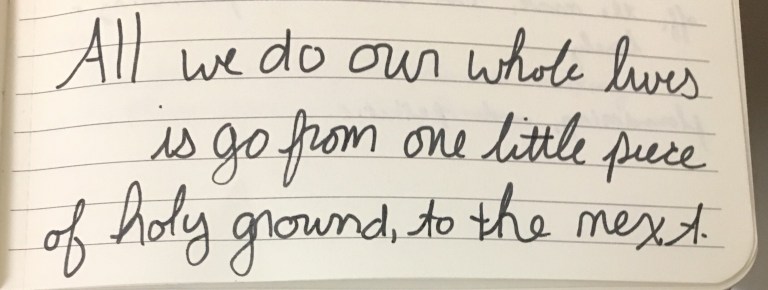 All we do our whole lives
is go from one little piece
of holy ground, to the next.